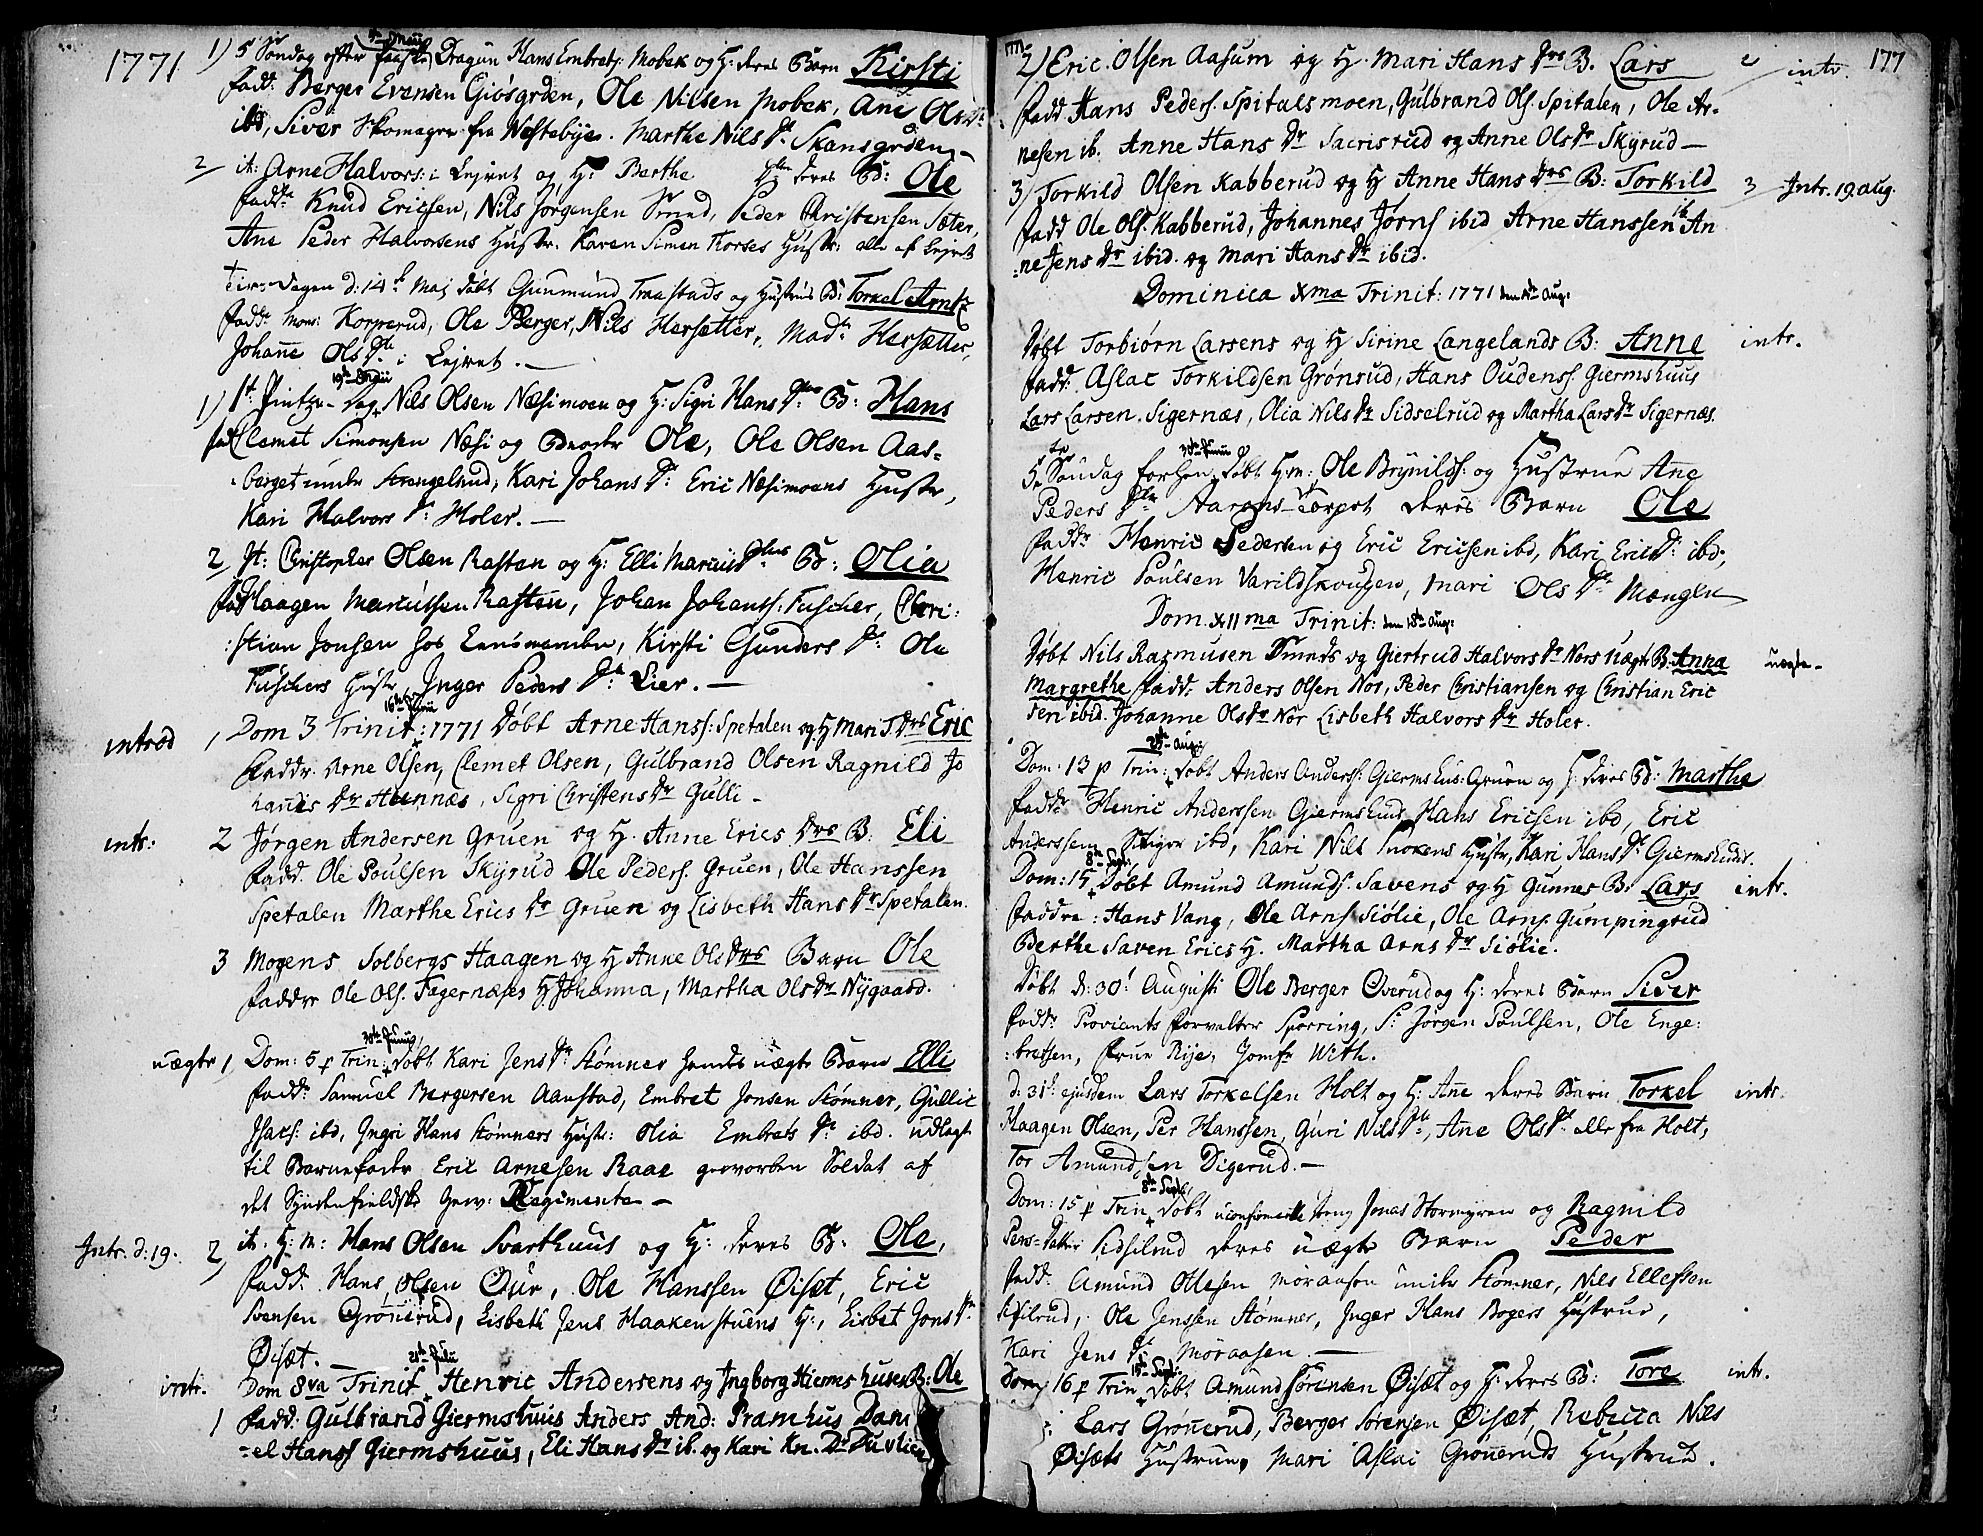 1771
1) 5 Søndag efter Paaske 5te Maii Dragun Hans Embretz. Mobek og H: deres Barn Kirsti
Fadd: Berger Evensen Giøsgrden, Ole Nilsen Mobek, Ane Ols Dr
ibd, Siver Skomager fra Westebÿe. Marthe Nils Dr Skansgrden
2 it: Arne Halvors: i Lejret og H: Berthe deres B: Ole
Fadd: Knud Ericsen, Nils Jørgensen Smed, Peder Christensen Sæter,
Ane Peder Halvorsens Hustr. Karen Simen Korses Hustr: alle af Lejret
Tirsdagen d: 14de Maj døbt Gunmund Traastads og Hustrus B: Torkel Arntz
Fadd: Mons: Korperud, Ole Berger, Nils Hersætter, Mad: Hersætter,
Johane Ols Dr i Lejret. —
1) 1st Pintze-Dag 19de Maii Nils Olsen Næsimoen og H: Sigri Hans Dtr B: Hans
Fad Clemet Simonsen Næsi og Broder Ole, Ole Olsen Aas-
berget under Strangelrud, Kari Johans Dr Eric Næsimoens Hustr,
Kari Halvors Dr Holer. —
2 It: Christopher Olsen Rasten og H: Elli Mariuus Dtr B: Olia
Fad Haagen Mariutsen Rasten, Johan Johants: Fuscher, Chri:
:stian Jonsen hos Lensmanden, Kirsti Gunders Dr Ole
Fuschers Hustr, Inger Peders Dr Lier. —
introd 1 Dom 3 Trinit: 16de Junii 1771 Døbt Arne Hanss: Spetalen og H Mari T. Drs Eric
Faddr. Arne Olsen, Clemet Olsen, Gulbrand Olsen Ragnild Jo
hanes Dr Hunnæs, Sigri Christens Dr Gulli -
intr: 2 Jørgen Andersen Gruen og H. Anne Erics Drs B. Eli
Fadd. Ole Poulsen Skÿrud Ole Peders. Gruen, Ole Hanssen
Spetalen Marthe Erics Dr Gruen og Lisbeth Hans Dr Spetalen.
3 Mogens Solbergs Haagen og H Anne Ols Drs Barn Ole
Faddre Ole Ols. Fagernæses H Johanna, Martha Ols Dr Nÿgaard.
uægte 1 Dom: 5 p Trin: 30te Junii Døbt Kari Jens Dr Stømner hendes uægte Barn Elli
Fadd: Samuel Bergersen Aanstad, Embret Jonsen Stømner, Gullic
Isacs: ibd, Ingri Hans Stømners Hustr: Olia Embrets Dr ibd. udlagt
til Barnefader Eric Arnesen Raae gevorben Soldat af
det Syndenfieldske Gev: Regimente —
Intr. d: 19. 2 it. H: M: Hans Olsen Svarthuus og H: deres B. Ole,
Fadd. Hans Olsen Øur, Ole Hanssen Øisæt, Eric
Bensen Grønerud, Lisbeth Jens Haakenstuens H:, Lisbet Jons Dr
Øisæt. —
intr. Dom 8va Trinit 21de Julii Henric Andersens og Ingborg Hiermshuses B: Ole
1 Fadd. Gulbrand Giermshuus Anders And: Pramhus Dani
-el Hanss Giermshuus, Eli Hans Dr ib. og Kari Kn. Dr
1771
177
2) Eric Olsen Aasum og H. Mari Hans Drs B. Lars 2 intr.
Fadd Hans Peders. Spitalsmoen, Gulbrand Ols. Spitalen, Ole Ar-
nesen ib. Anne Hans Dr Sacrisrud og Anne Ols Dr Skÿrud —
3) Torkild Olsen Kabberud og H Anne Hans Drs B: Torkild 3 Intr. 19. aug.
Fadd Ole Ols. Kabberud, Johannes Jørns ibid Arne Hanssen ib An
:nesens Dr ibid. og Mari Hans Dr ibid.
Dominica Xma Trinit: 1771 den 4de Aug:
Døbt Torbiørn Larsens og H Sirine Langelands B: Anne intr.
Fadd. Aslac Torkildsen Grønrud, Hans Oudenss. Giermshuus
Lars Larsen. Sigernæs, Olia Nils Dr Sidselrud og Martha Lars Dr Sigernæs.
5te Søndag forhen 30te Junii døbt H.m: Ole Brynilds: og Hustrue Ane
Peders Dtr Aarens-torpet deres Barn Ole
Fadd: Henric Pedersen og Eric Ericsen ibd, Kari Erics Dr ibd;
Henric Poulsen Varildskougen, Mari Ols Dr Mangen
Dom. XIIma Trinit: den 18de Aug:
Døbt Nils Rasmusen Smeds og Giertrud Halvors Dr Nors uægte B: Anna uægte-
Margrethe Fadd: Anders Olsen Nor, Peder Christiansen og Christian Eric
sen ibid. Johanne Ols Dr Nor Lisbeth Halvors Dr Holer.
Dom: 13 p Trin: 25de Aug: Døbt Anders Anderss: Giermshus: Gruen og H: deres B: Marthe
Fadd: Henric Anderssen Giermshus Hans Ericsen ibd, Eric
Anderssen ibd, Kari Nils Snokens Hustr, Kari Hans Dr Giermshus.
Dom: 15 8de Sept: Døbt Amund Amunds. Savens og H Gunnes B: Lars intr.
Faddre: Hans Vang, Ole Arns Siølie, Ole Arns. Gumpingrud
Berthe Saven Erics H. Martha Arns Dr Siølie.
Døbt d: 30t Augusti Ole Berger Overud og H: deres Barn Siver
Fadd: Proviants forvalter Sporring, Sr Jørgen Poulsen, Ole Enge:
:bretsen, Frue Rÿe, Jomfr With.
d: 31t ejusdem Lars Torkelsen Holt og H: Ane deres Barn Torkel intr.
Haagen Olsen, Per Hanssen, Guri Nils Dr, Ane Ols Dr alle fra Holt,
Tor Amundsen Digerud. —
Dom: 15 p Trin 8de Sept: døbt uconfirmerte dreng Jonas Stormyren og Ragnild
Pers-datter Sidsilrud deres uægte Barn Peder
Fadd. Amund Ollesen Moraasen under Stømner, Nils Ellefsen
Sidsilrud, Ole Jenssen Stømner, Inger Hans Bogers Hustrue,
Kari Jens Dr Moraasen. —
Dom 16 p Trin 15de Sept: Døbt Amund Sørensen Øisæt og H: deres B: Tore intr.
Lars Grønerud, Berger Sørensen Øisæt, Rebecca Nils
Øisæts Hustrue, Mari Aslac Grøneruds Hustrue.